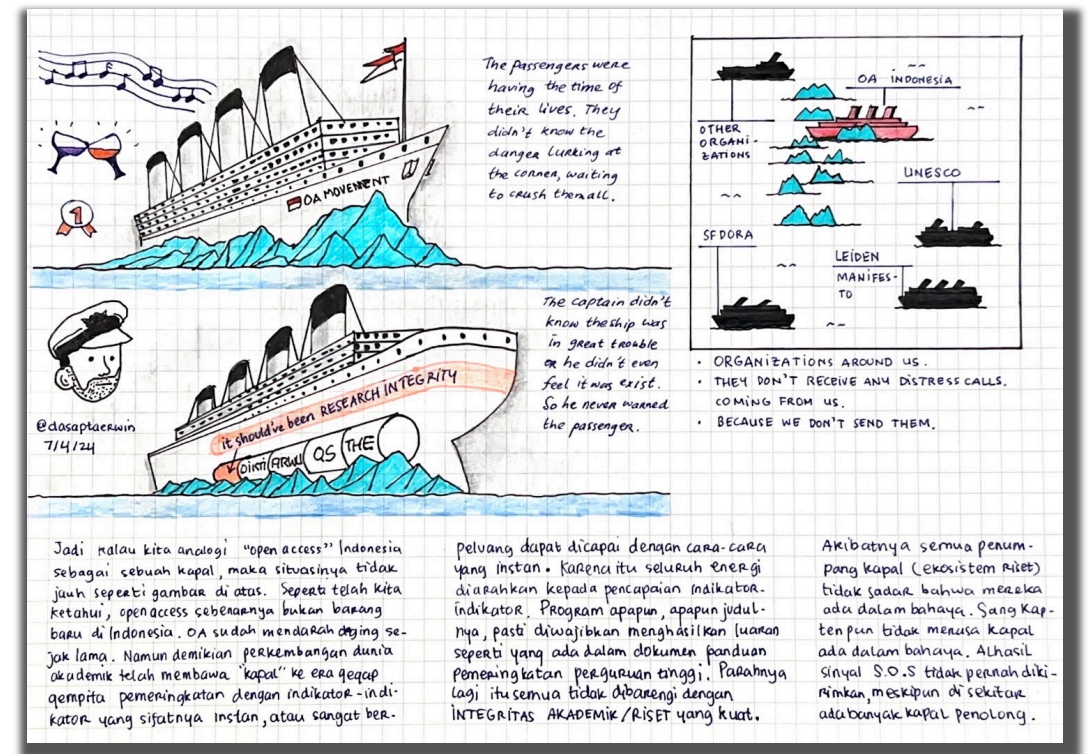 The passengers were
having the time of
their lives. They
didn't know the
danger lurking at
the corner, waiting
to crush them all.
OA MOVEMENT
1
OTHER
ORGANI-
ZATIONS
OA INDONESIA
UNESCO
SFDORA
LEIDEN
MANIFES-
TO
The captain didn't
know the ship was
in great trouble
or he didn't even
feel it was exist.
So he never warned
the passenger.
it should've been RESEARCH INTEGRITY
DIKTI
ARWU
QS
THE
@dasaptaerwin
7/4/24
• ORGANIZATIONS AROUND US.
• THEY DON'T RECEIVE ANY DISTRESS CALLS.
COMING FROM US.
• BECAUSE WE DON'T SEND THEM.
Jadi kalau kita analogi "open access" Indonesia
sebagai sebuah kapal, maka situasinya tidak
jauh seperti gambar di atas. Seperti telah kita
ketahui, open access sebenarnya bukan barang
baru di Indonesia. OA sudah mendarah daging se-
jak lama. Namun demikian perkembangan dunia
akademik telah membawa "kapal" ke era gegap
gempita pemeringkatan dengan indikator-indi-
kator yang sifatnya instan, atau sangat ber-
peluang dapat dicapai dengan cara-cara
yang instan. Karena itu seluruh energi
diarahkan kepada pencapaian indikator-
indikator. Program apapun, apapun judul-
nya, pasti diwajibkan menghasilkan luaran
seperti yang ada dalam dokumen panduan
pemeringkatan perguruan tinggi. Parahnya
lagi itu semua tidak dibarengi dengan
INTEGRITAS AKADEMIK/RISET yang kuat.
Akibatnya semua penum-
pang kapal (ekosistem riset)
tidak sadar bahwa mereka
ada dalam bahaya. Sang Kap-
ten pun tidak merasa kapal
ada dalam bahaya. Alhasil
sinyal S.O.S tidak pernah diki-
rimkan, meskipun di sekitar
ada banyak kapal penolong.